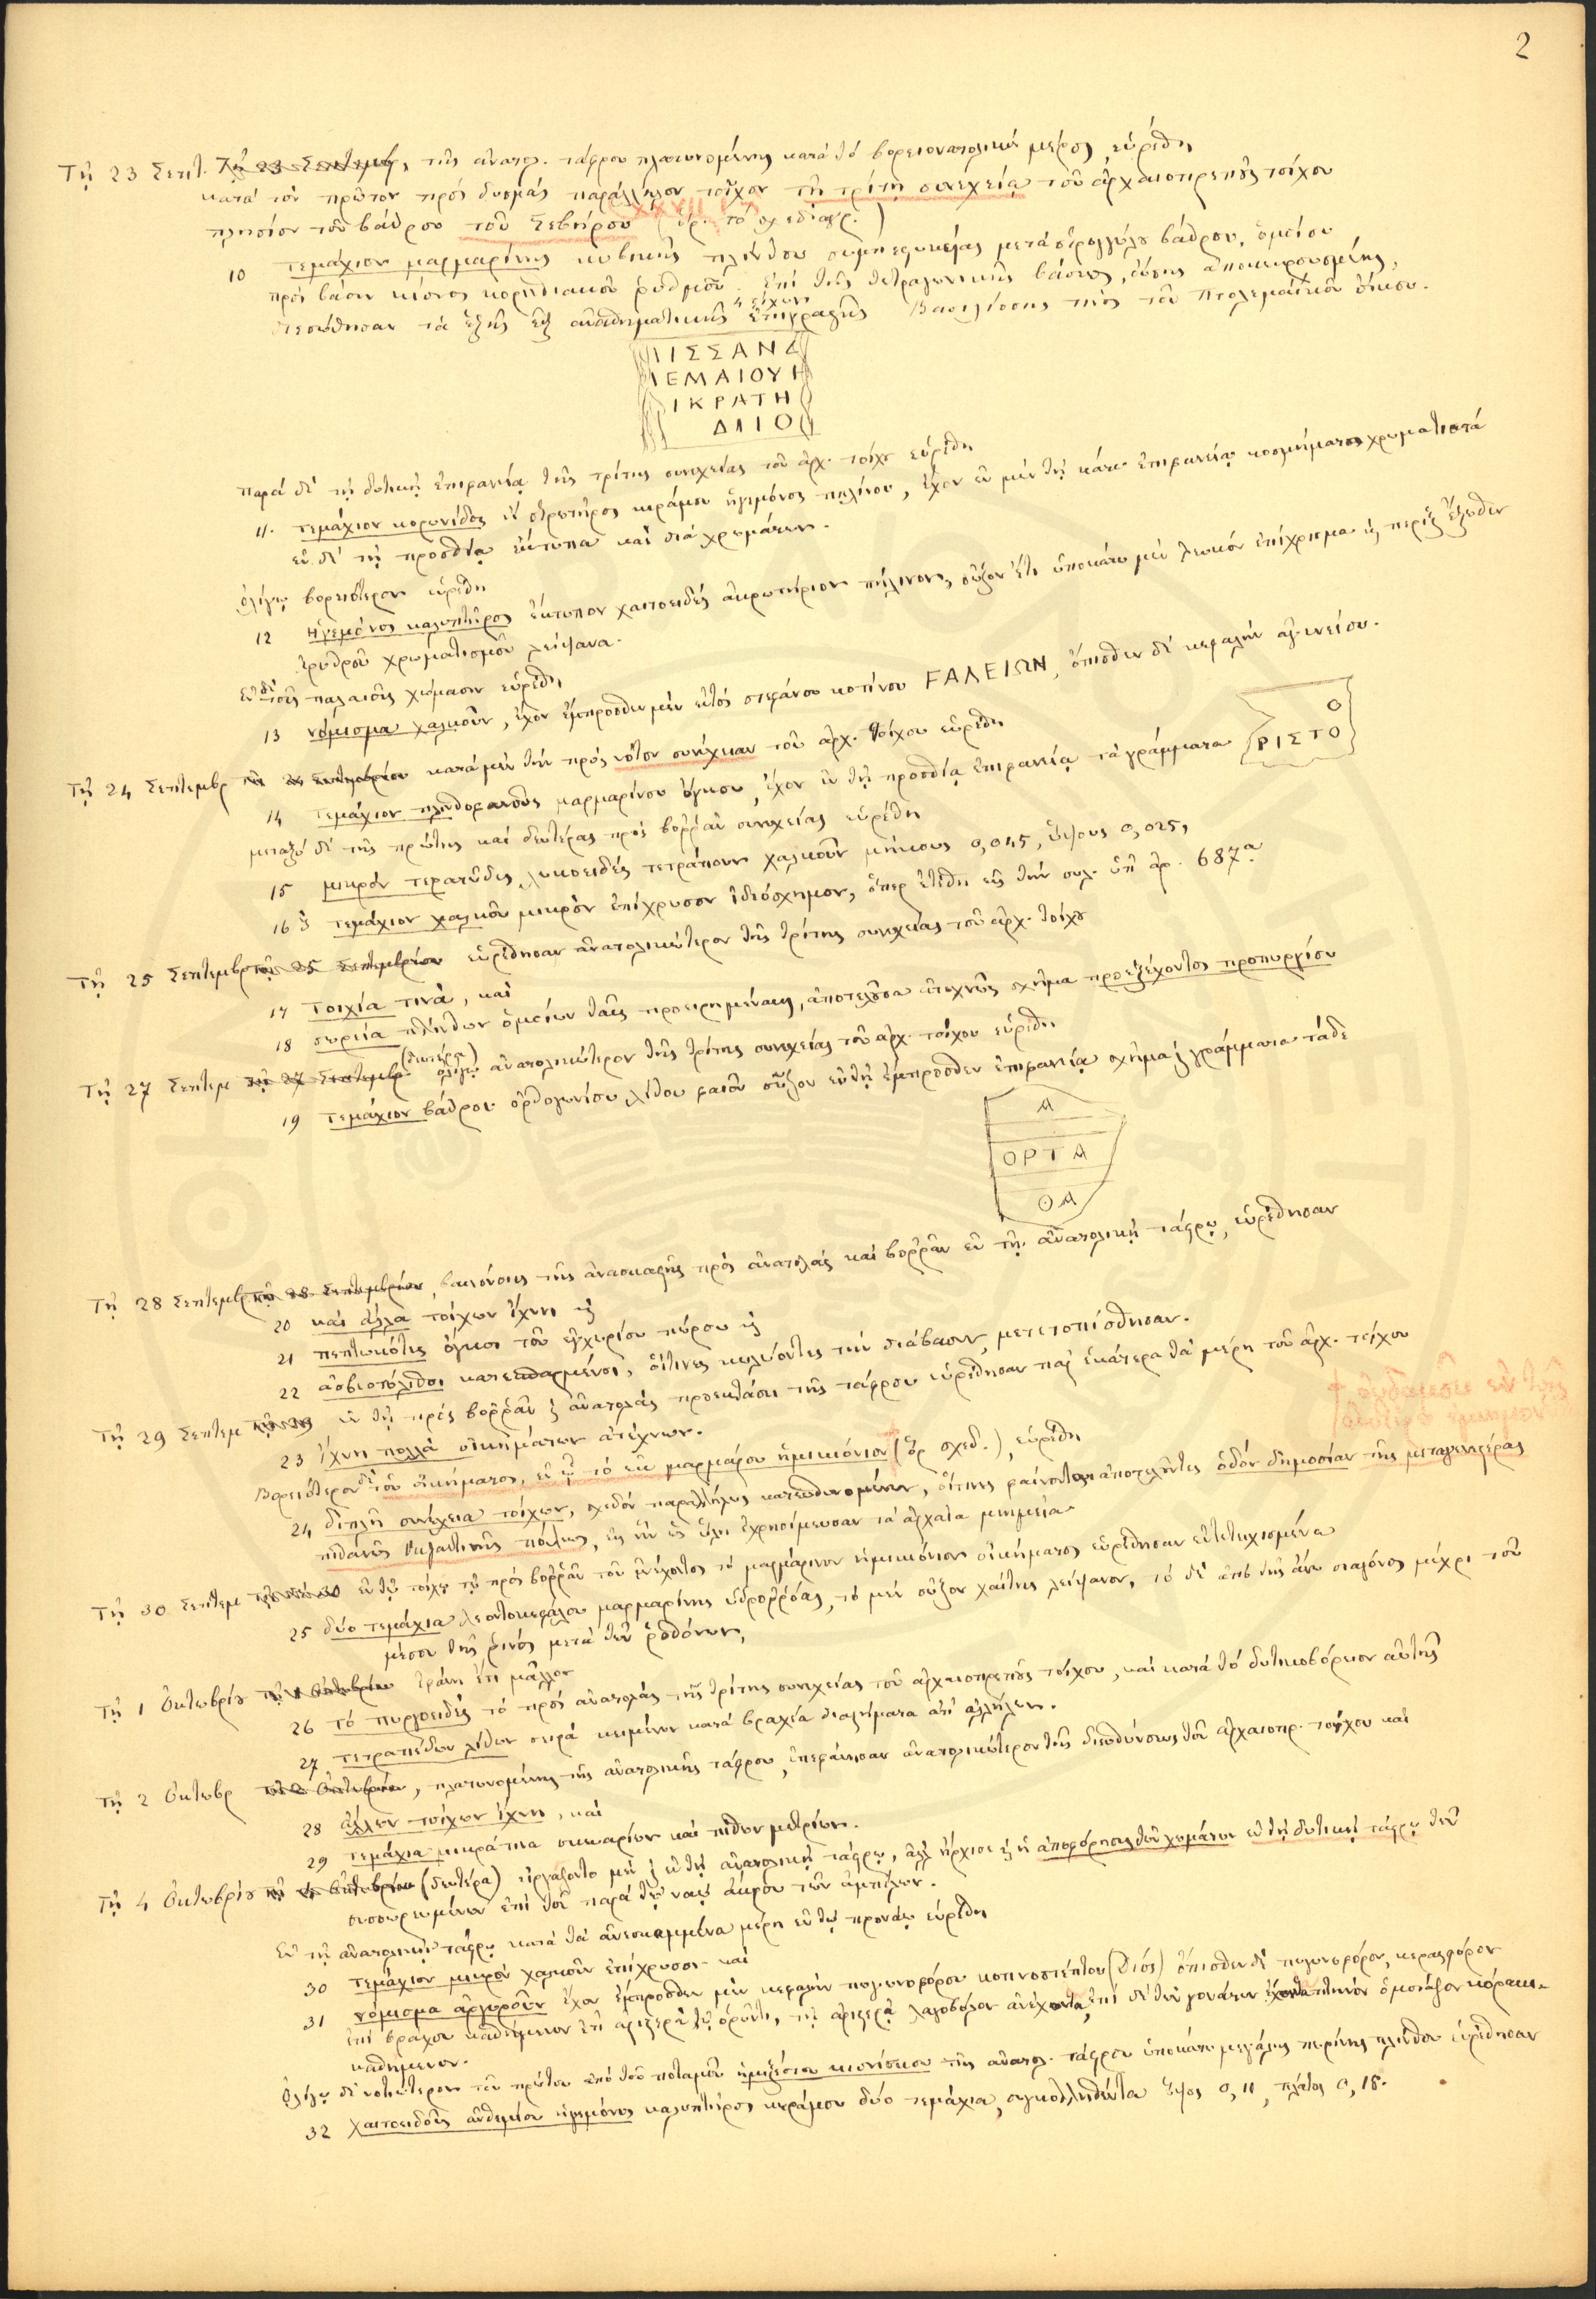 2
Τῇ 23 Σεπτ. Τῇ 23 Σεπτεμβ, τῆς ἀνατολ. τάφρου πλατυνομένης κατὰ τὸ βορειοανατολικὸν μέρος εὑρέθη
κατὰ τὸν πρῶτον πρὸς δυσμὰς παράλληλον τοῖχον τῇ τρίτῃ συνεχείᾳ τοῦ ἀρχαιοπρεποῦς τοίχου
πλησίον τοῦ βάθρου τοῦ Σεβήρου (ὁρ. τὸ σχεδιαγρ.)
10 τεμάχιον μαρμαρίνης κυβικῆς πλίνθου συμπεφυκυίας μετὰ στρογγύλου βάθρου, ὁμοίου
πρὸς βάσιν κίονος κορινθιακοῦ ῥυθμοῦ. Ἐπὶ τῆς τετραγωνικῆς βάσεως, οὔσης ἀποκεκρουσμένης,
διεσώθησαν τὰ ἑξῆς ἐξ ἀναθηματικῆς 4 στίχων ἐπιγραφῆς Βασιλίσσης τινὸς τοῦ Πτολεμαϊκοῦ οἴκου.
ΙΙΣΣΑΝΔ
ΙΕΜΑΙΟΥΗ
ΙΚΡΑΤΗ
ΔΛΙΟ
παρὰ δὲ τῇ δυτικῇ ἐπιφανείᾳ τῆς τρίτης συνεχείας τοῦ ἀρχ. τοίχου εὑρέθη
11. τεμάχιον κορωνίδος ἐκ στρωτῆρος κεράμου ἡγεμόνος πηλίνου, ἔχον ἐν μὲν τῇ κάτω ἐπιφανείᾳ κοσμήματα χρωματιστὰ
ἐν δὲ τῇ προσθίᾳ ἔκτυπα καὶ διὰ χρωμάτων.
ὀλίγῳ βορειότερον εὑρέθη
12 Ἡγεμόνος καλυπτῆρος ἔκτυπον χαιτοειδὲς ἀκρωτήριον πήλινον, σῶζον ἔτι ὑποκάτω μὲν λευκὸν ἐπίχρισμα ἐς πέριξ ἔξωθεν
ἐρυθροῦ χρωματισμοῦ λείψανα.
Ἐν δὲ τοῖς παλαιοῖς χώμασιν εὑρέθη
13 νόμισμα χαλκοῦν, ἔχον ἔμπροσθεν μὲν ἐντὸς στεφάνου κοτίνου ϜΑΛΕΙΩΝ, ὄπισθεν δὲ κεφαλὴν
Τῇ 24 Σεπτεμβρ τῇ 24 Σεπτεμβρίου κατὰ μὲν τὴν πρὸς νότον συνέχειαν τοῦ ἀρχ. τοίχου εὑρέθη
14 Τεμάχιον πλινθοφανοῦς μαρμαρίνου ὄγκου, ἔχον ἐν τῇ προσθίᾳ ἐπιφανείᾳ τὰ γράμματα
Ο
ΡΙΣΤΟ
μεταξὺ δὲ τῆς πρώτης καὶ δευτέρας πρὸς βορρᾶν συνεχείας εὑρέθη
15 μικρὸν τερατῶδες λυκοειδὲς τετράπουν χαλκοῦν μήκους 0,045, ὕψους 0,025,
16 τεμάχιον χαλκοῦ μικρὸν ἐπίχρυσον ἰδιόσχημον, ὅπερ ἐτέθη εἰς τὴν συλ. ὑπ' ἀρ. 687α
Τῇ 25 Σεπτεμβρ τῇ 25 Σεπτεμβρίου εὑρέθησαν ἀνατολικώτερον τῆς τρίτης συνεχείας τοῦ ἀρχ. τοίχου
17 Τοιχία τινά, καὶ
18 σωρεία πλίνθων ὁμοίων ταῖς προειρημέναις, ἀποτελοῦσα ἀτεχνῶς σχῆμα προεξέχοντος προπυργίου
Τῇ 27 Σεπτεμ τῇ 27 Σεπτεμβρ (δευτέρα) ὀλίγῳ ἀνατολικώτερον τῆς τρίτης συνεχείας τοῦ ἀρχ. τοίχου εὑρέθη
19 Τεμάχιον βάθρου ὀρθογωνίου λίθου φαιοῦ σῶζον ἐν τῇ ἔμπροσθεν ἐπιφανείᾳ σχῆμα γράμματα τάδε
Α
ΟΡΤΑ
ΘΑ
Τῇ 28 Σεπτεμβρ τῇ 28 Σεπτεμβρίου, βαινούσης τῆς ἀνασκαφῆς πρὸς ἀνατολὰς καὶ βορρᾶν ἐν τῇ ἀνατολικῇ τάφρῳ, εὑρέθησαν
20 καὶ ἄλλα τοίχων ἴχνη
21 πεπτωκότες ὄγκοι τοῦ ἐγχωρίου πώρου
22 ἀσβεστόλιθοι κατειργασμένοι, οἵτινες κωλύοντες τὴν διάβασιν, μετετοπίσθησαν.
Τῇ 29 Σεπτεμ τῇ 29 ἐν τῇ πρὸς βορρᾶν ἀνατολὰς προεκτάσει τῆς τάφρου εὑρέθησαν παρ' ἑκάτερα τὰ μέρη τοῦ ἀρχ. τοίχου
23 ἴχνη πολλὰ οἰκημάτων ἀτέχνων.
Βορειότερον δὲ τοῦ οἰκήματος, ἐν ᾧ τὸ ἐκ μαρμάρου ἡμικιόνιον (ὅρ σχεδ.), εὑρέθη
24 διπλῆ συνέχεια τοίχων, σχεδὸν παραλλήλως κατευθυνομένων, οἵτινες φαίνονται ἀποτελοῦντες ὁδὸν δημοσίαν τῆς μεταγενεστέρας
πιθανῶς Βυζαντινῆς πόλεως, εἰς ἣν ὡς ὕλη ἐχρησίμευσαν τὰ ἀρχαῖα μνημεῖα
Τῇ 30 Σεπτεμ ἐν τῷ τοίχῳ τῷ πρὸς βορρᾶν τοῦ ἐνέχοντος τὸ μαρμάρινον ἡμικιόνιον οἰκήματος εὑρέθησαν ἐντετειχισμένα
25 δύο τεμάχια λεοντοκεφάλου μαρμαρίνης ὑδρορρόας, τὸ μὲν σῶζον χαίτης λείψανον, τὸ δὲ ἀπὸ τῆς ἄνω σιαγόνος μέχρι τοῦ
μέσου τῆς ῥινὸς μετὰ τῶν ῥοθόνων,
Τῇ 1 Ὀκτωβρίου τῇ 1 Ὀκτωβρίου ἐφάνη ἔτι μᾶλλον
26 Τὸ πυργοειδὲς τὸ πρὸς ἀνατολὰς τῆς τρίτης συνεχείας τοῦ ἀρχαιοπρεποῦς τοίχου, καὶ κατὰ τὸ δυτικοβόρειον αὐτῆς
27 τετραπέδων λίθων σειρὰ κειμένων κατὰ βραχέα διαστήματα ἀπ' ἀλλήλων.
Τῇ 2 Ὀκτωβρ τῇ 2 Ὀκτωβρίου, πλατυνομένης τῆς ἀνατολικῆς τάφρου, ἐπεφάνησαν ἀνατολικώτερον τῆς διευθύνσεως τοῦ ἀρχαιοπρ. τοίχου καὶ
28 ἄλλων τοίχων ἴχνη, καὶ
29 τεμάχια μικρά τινα σκευαρίων καὶ πίθων μετρίων.
Τῇ 4 Ὀκτωβρίου τῇ 4 Ὀκτωβρίου (δευτέρα) εἰργάζοντο μὲν ἐν τῇ ἀνατολικῇ τάφρῳ, ἀλλ' ἤρχισε ἡ ἀποφόρησις τῶν χωμάτων ἐν τῇ δυτικῇ τάφρῳ τῶν
σεσωρευμένων ἐπὶ τοῦ παρὰ τῷ ναῷ ἄκρου τῶν ἀμπέλων.
Ἐν τῇ ἀνατολικῇ τάφρῳ κατὰ τὰ ἀνεσκαμμένα μέρη ἐν τῷ προνάῳ εὑρέθη
30 τεμάχιον μικρὸν χαλκοῦν ἐπίχρυσον καὶ
31 νόμισμα ἀργυροῦν ἔχον ἔμπροσθεν μὲν κεφαλὴν πωγωνοφόρου κοτινοστέπτου (Διός) ὄπισθεν δὲ πωγωνοφόρον, κερασφόρον
ἐπὶ βράχου καθήμενον ἐπ' ἀριστερὰ τῷ ὁρῶντι, τῇ ἀριστερᾷ λαγωβόλον ἀνέχοντα, ἐπὶ δὲ τῶν γονάτων ἔχοντα πτηνὸν ὁμοιάζον κόρακι
καθήμενον.
Ὀλίγῳ δὲ νοτιώτερον τοῦ πρώτου ἀπὸ τοῦ ποταμοῦ ἡμιξέστου κιονίσκου τῆς ἀνατολ. τάφρου ὑποκάτω μεγάλης πωρίνης πλίνθου εὑρέθησαν
32 χαιτοειδοῦς ἀνθεμίου ἡγεμόνος καλυπτῆρος κεράμου δύο τεμάχια, συγκολληθέντα ὕψος 0,11, πλάτος 0,18.